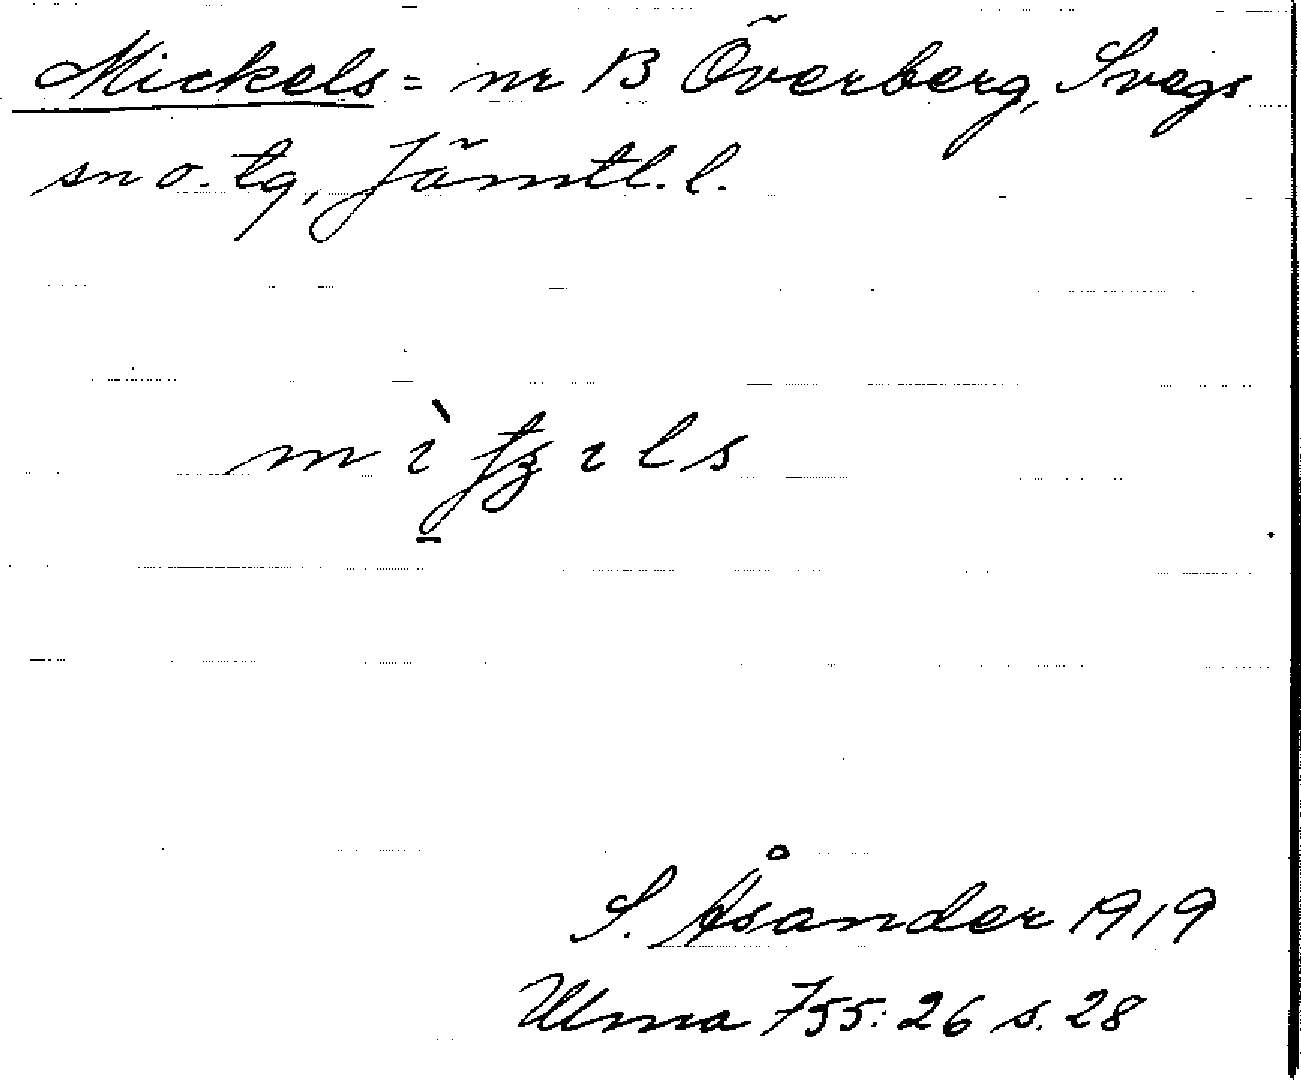 Mickels = nr 13 Överberg, Svegs
sn o. tg, Jämtl. l.
S. Åsander 1919
Ulma 755:26 s. 28